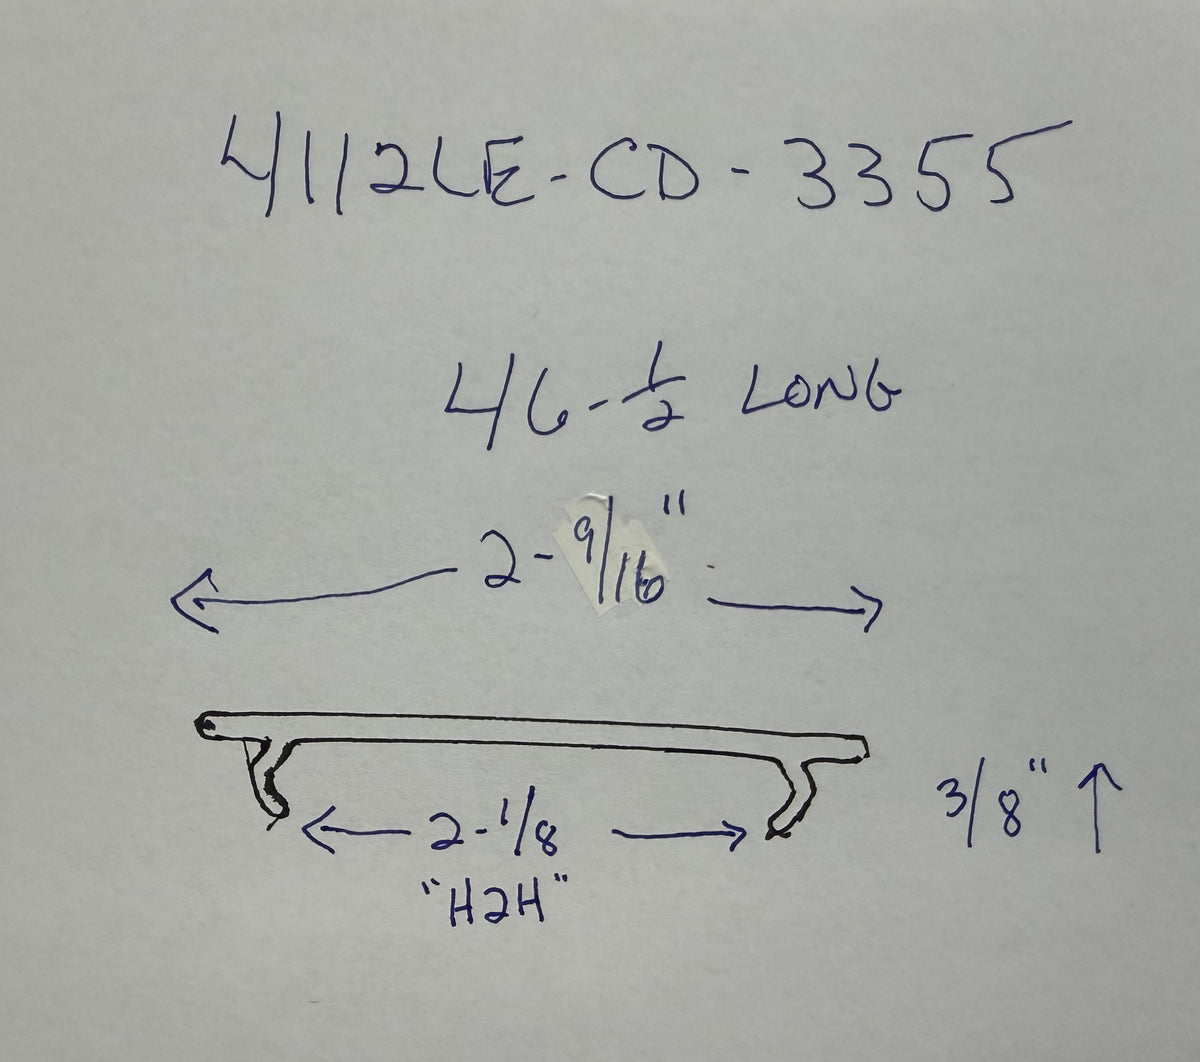 4112LE-CD-3355
46-1/2 LONG
2-9/16"
2-1/8
"H2H"
3/8"